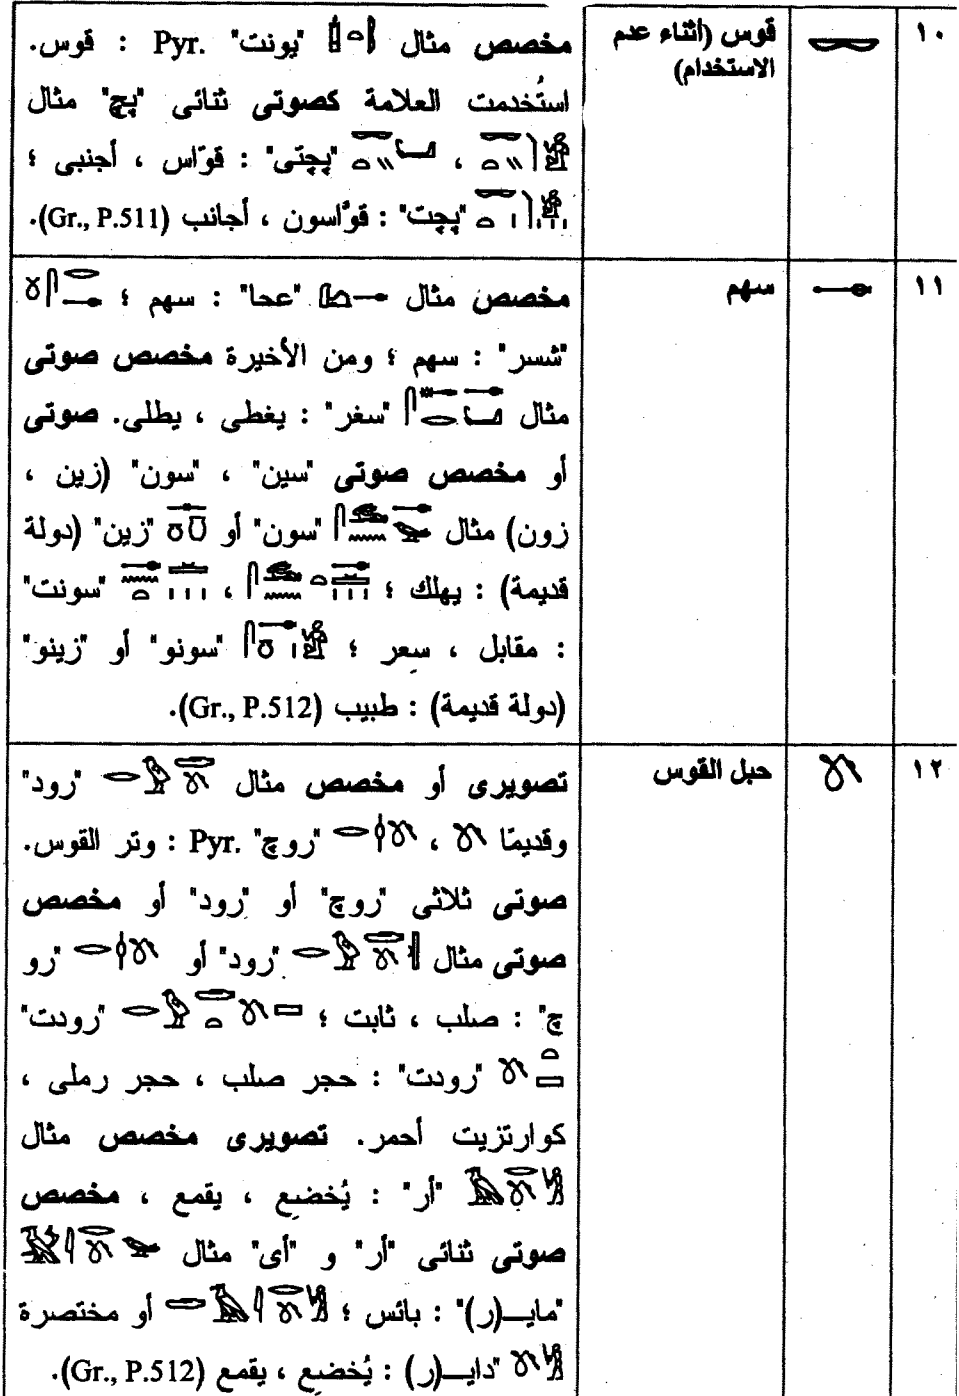 ١٠
قوس (أثناء عدم
الاستخدام)
مخصص مثال "يونت" Pyr. : قوس.
استُخدمت العلامة كصوتى ثنائى "پچ" مثال
، "پچتى" : قوّاس ، أجنبى ؛
"پچت" : قوَّاسون ، أجانب (Gr., P.511).
١١
سهم
مخصص مثال "عحا" : سهم ؛
"شسر" : سهم ؛ ومن الأخيرة مخصص صوتى
مثال "سغر" : يغطى ، يطلى. صوتى
أو مخصص صوتى "سين" ، "سون" (زين ،
زون) مثال "سون" أو "زين" (دولة
قديمة) : يهلك ؛ ، "سونت"
: مقابل ، سعر ؛ "سونو" أو "زينو"
(دولة قديمة) : طبيب (Gr., P.512).
١٢
حبل القوس
تصويرى أو مخصص مثال "رود"
وقديمًا ، "روچ" Pyr. : وتر القوس.
صوتى ثلاثى "روچ" أو "رود" أو مخصص
صوتى مثال "رود" أو "رو
چ" : صلب ، ثابت ؛ "رودت"
"رودت" : حجر صلب ، حجر رملى ،
كوارتزيت أحمر. تصويرى مخصص مثال
"أر" : يُخضع ، يقمع ، مخصص
صوتى ثنائى "أر" و "أى" مثال
"مايـ(ر)" : بائس ؛ أو مختصرة
"دايـ(ر) : يُخضع ، يقمع (Gr., P.512).